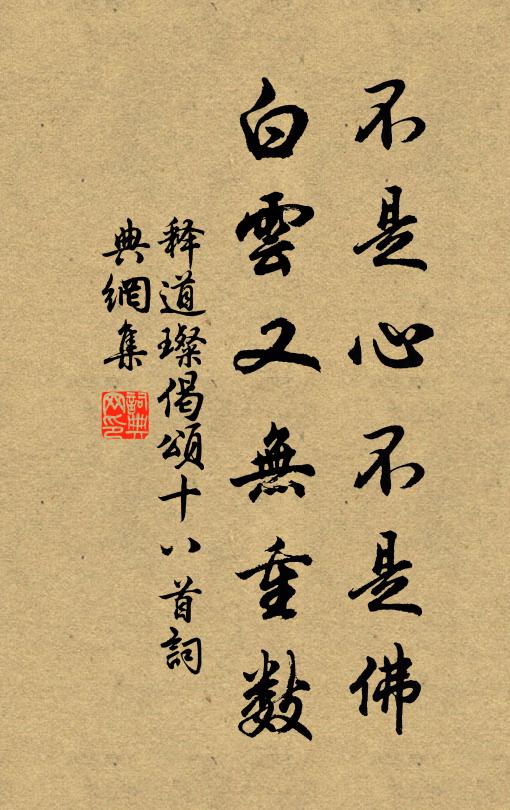 不是心不是佛
白雲又無重數
释道璨偈頌十八首詞
典網集
詞典網印